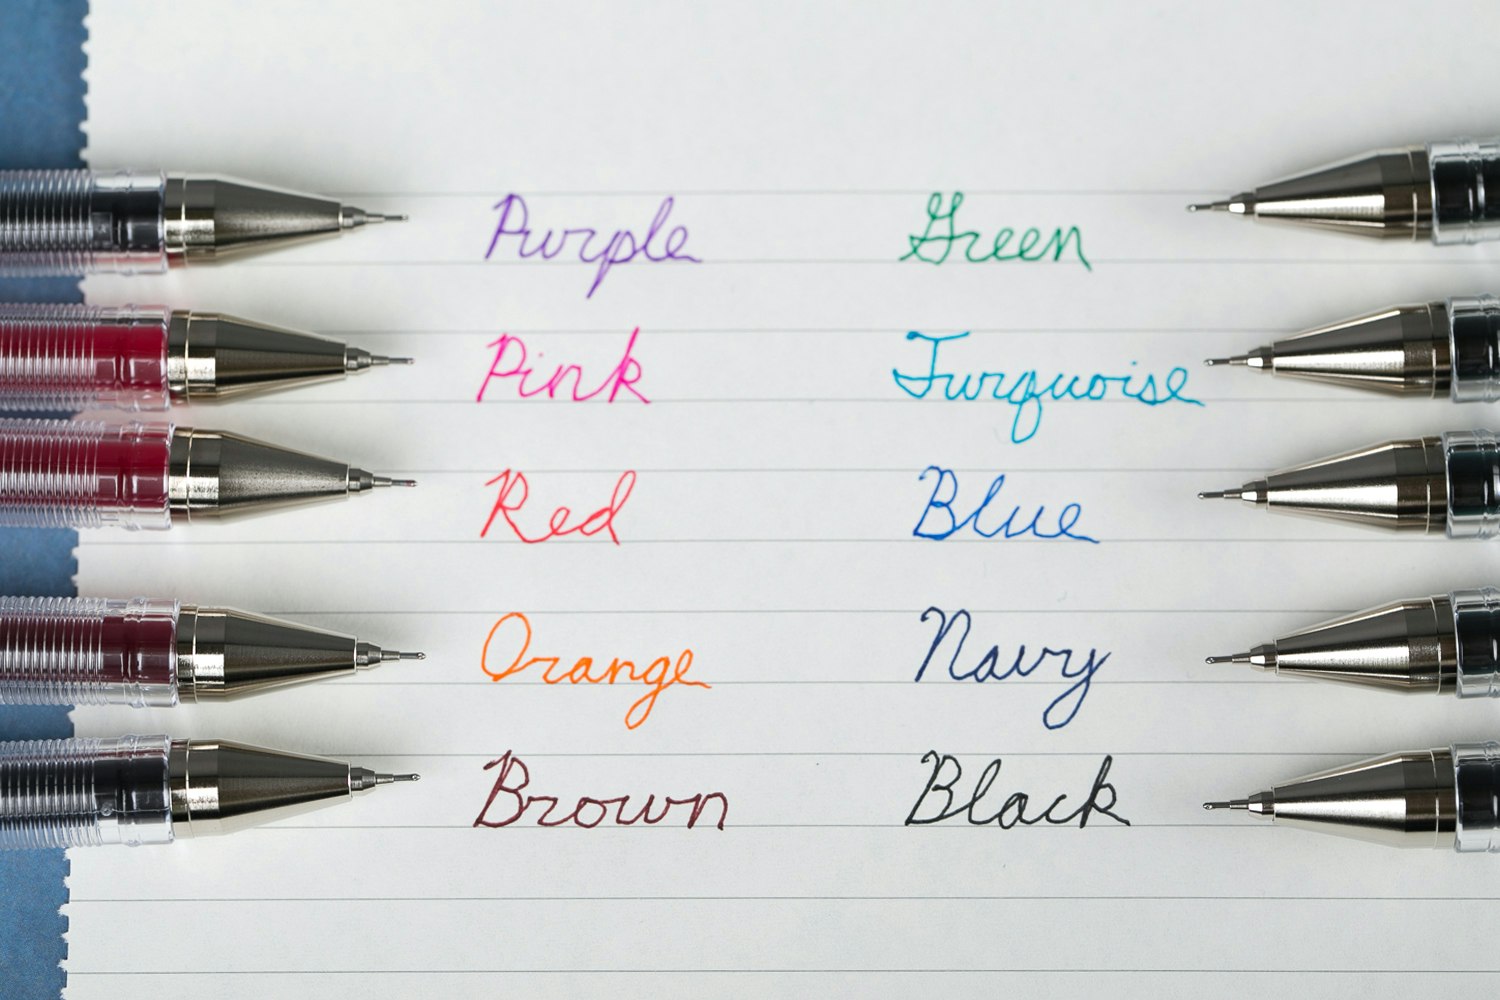 Purple Green
Pink Turquoise
Red Blue
Orange Navy
Brown Black